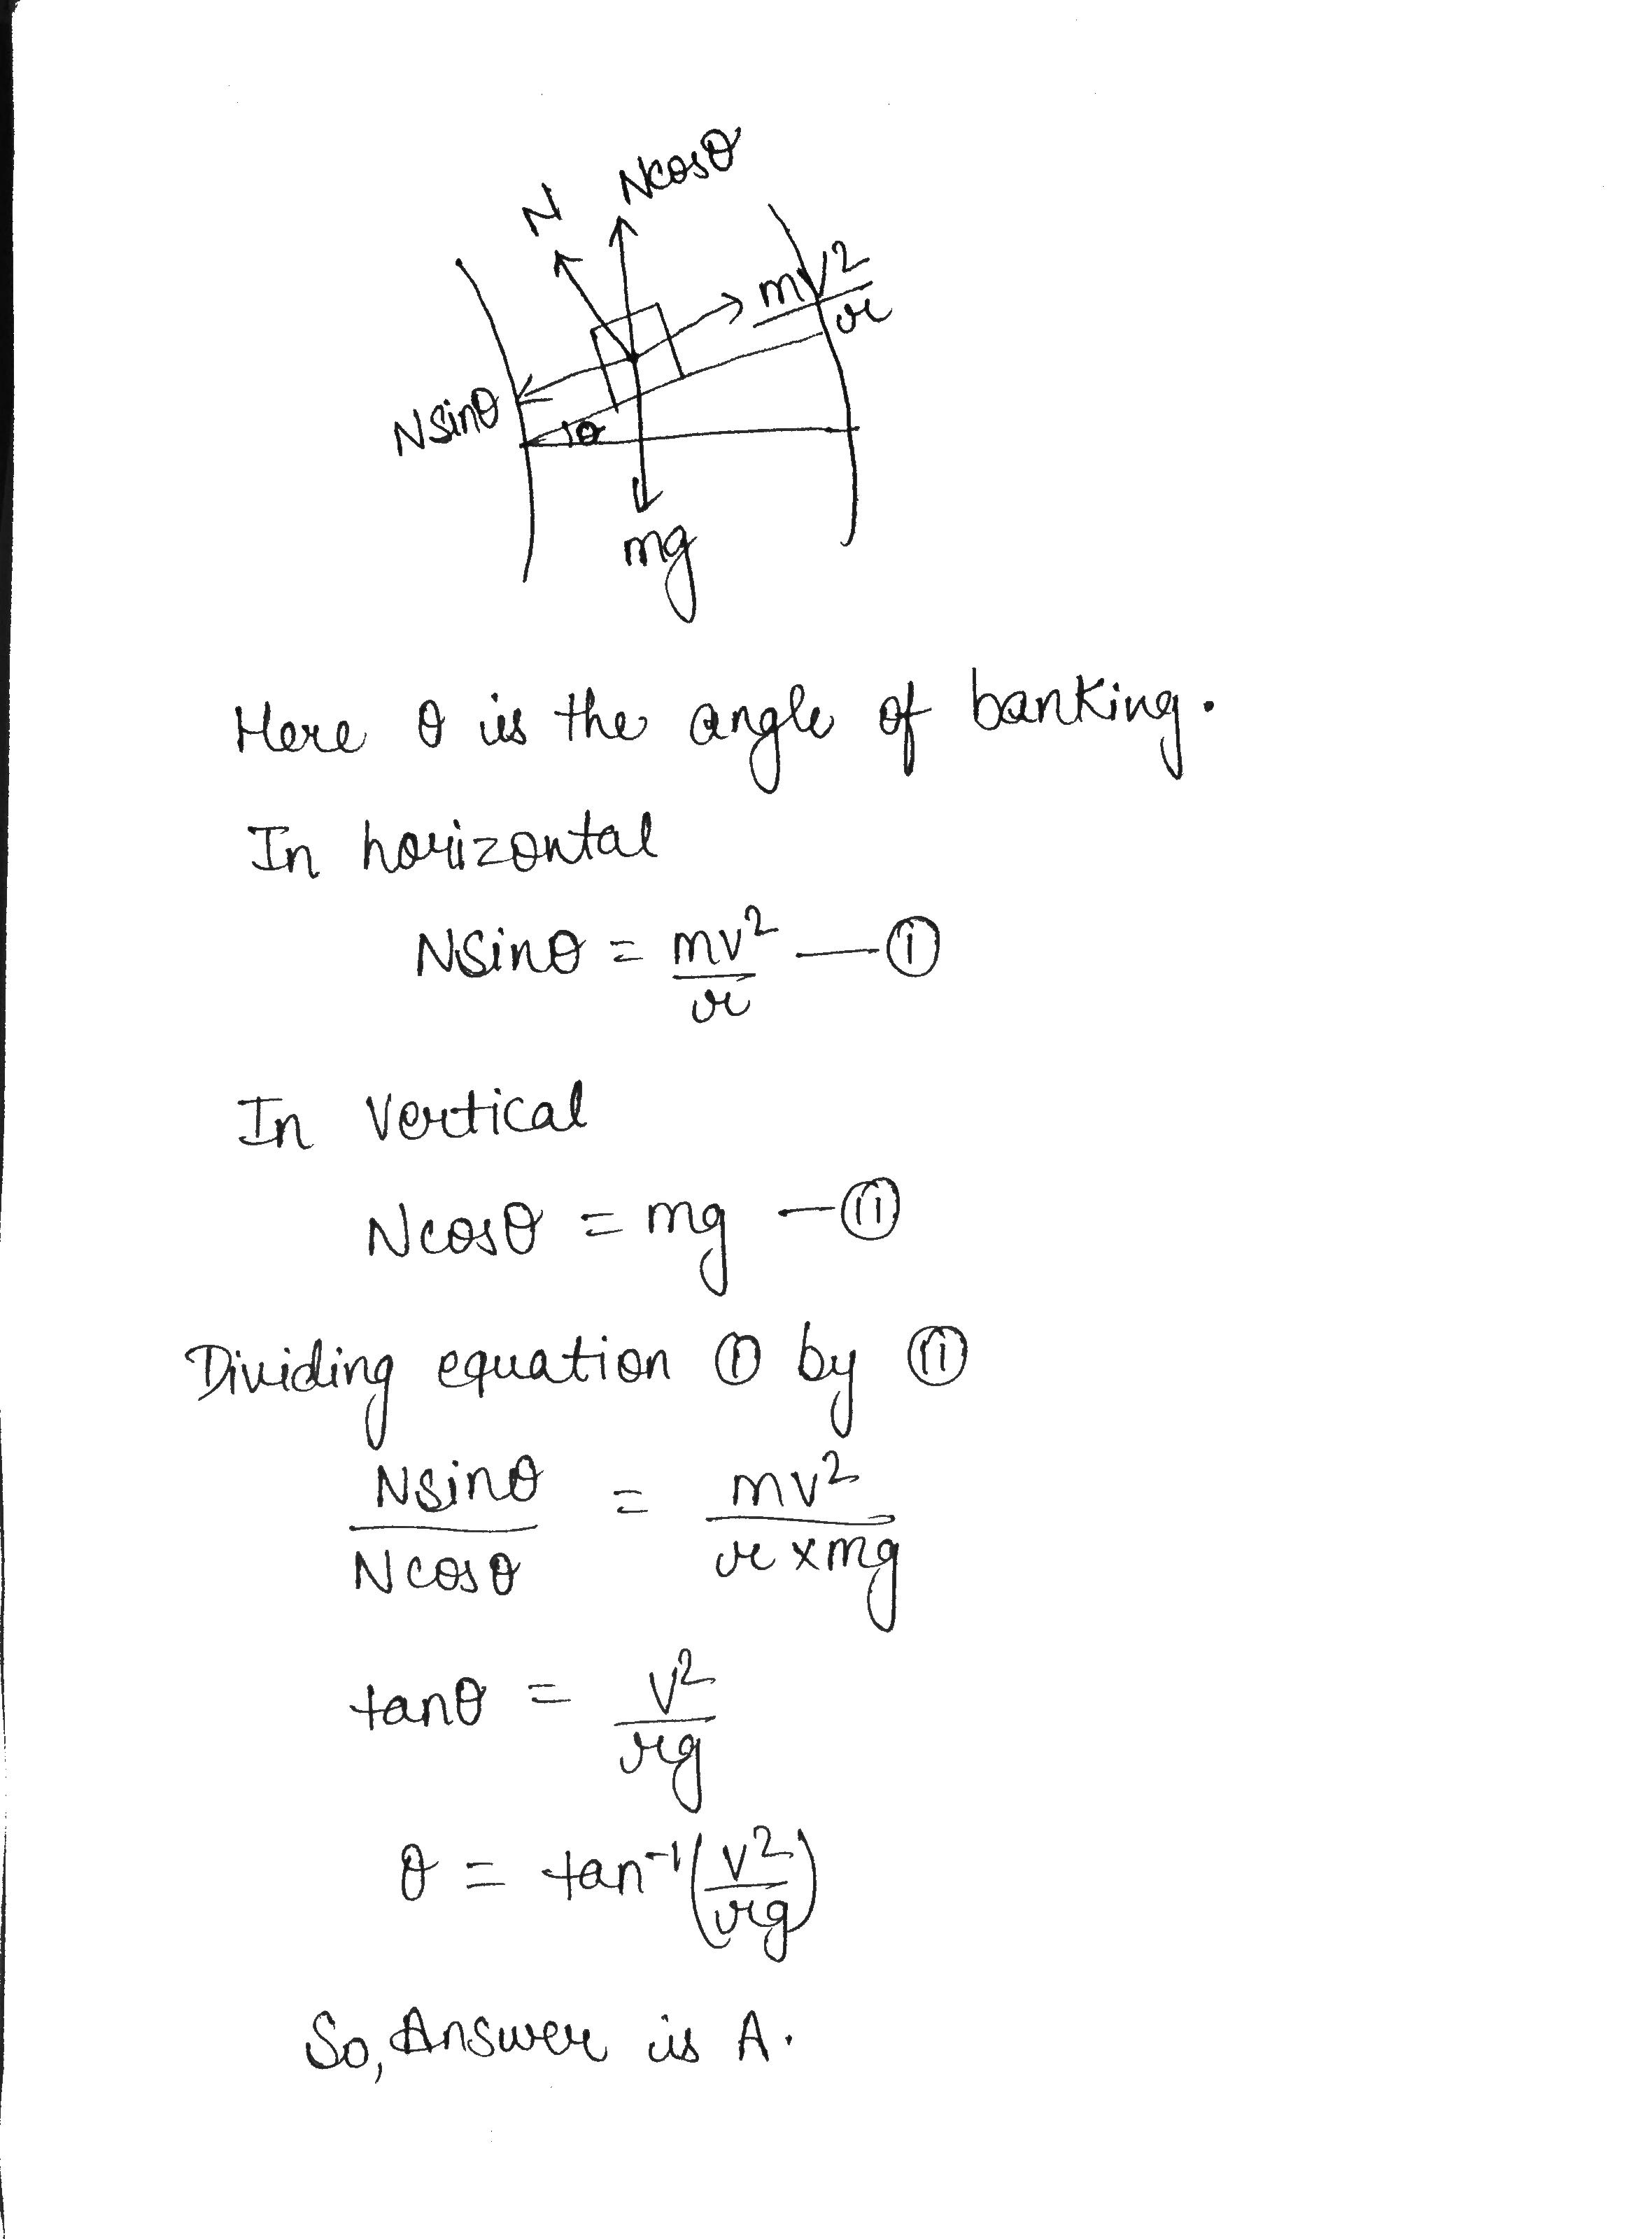 N
Ncosθ
mv²/r
Nsinθ
θ
mg
Here θ is the angle of banking.
In horizontal
Nsinθ = mv²/r — ①
In Vertical
Ncosθ = mg — ⑪
Dividing equation ① by ⑪
Nsinθ/Ncosθ = mv²/r×mg
tanθ = v²/rg
θ = tan⁻¹(v²/rg)
So, Answer is A.